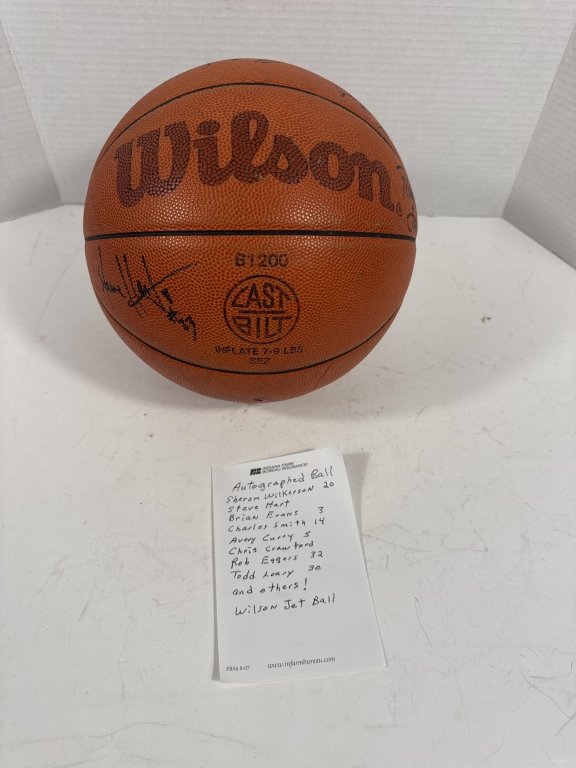 Wilson®
B1200
LAST BILT
INFLATE 7-9 LBS
INDIANA FARM
BUREAU INSURANCE
Autographed Ball
Sherom Wilkerson 20
Steve Hart
Brian Evans 3
Charles Smith 14
Avery Curry 5
Chris Crawford
Rob Eggers 32
Todd Leary 30
and others!
Wilson Jet Ball
www.infarmbureau.com